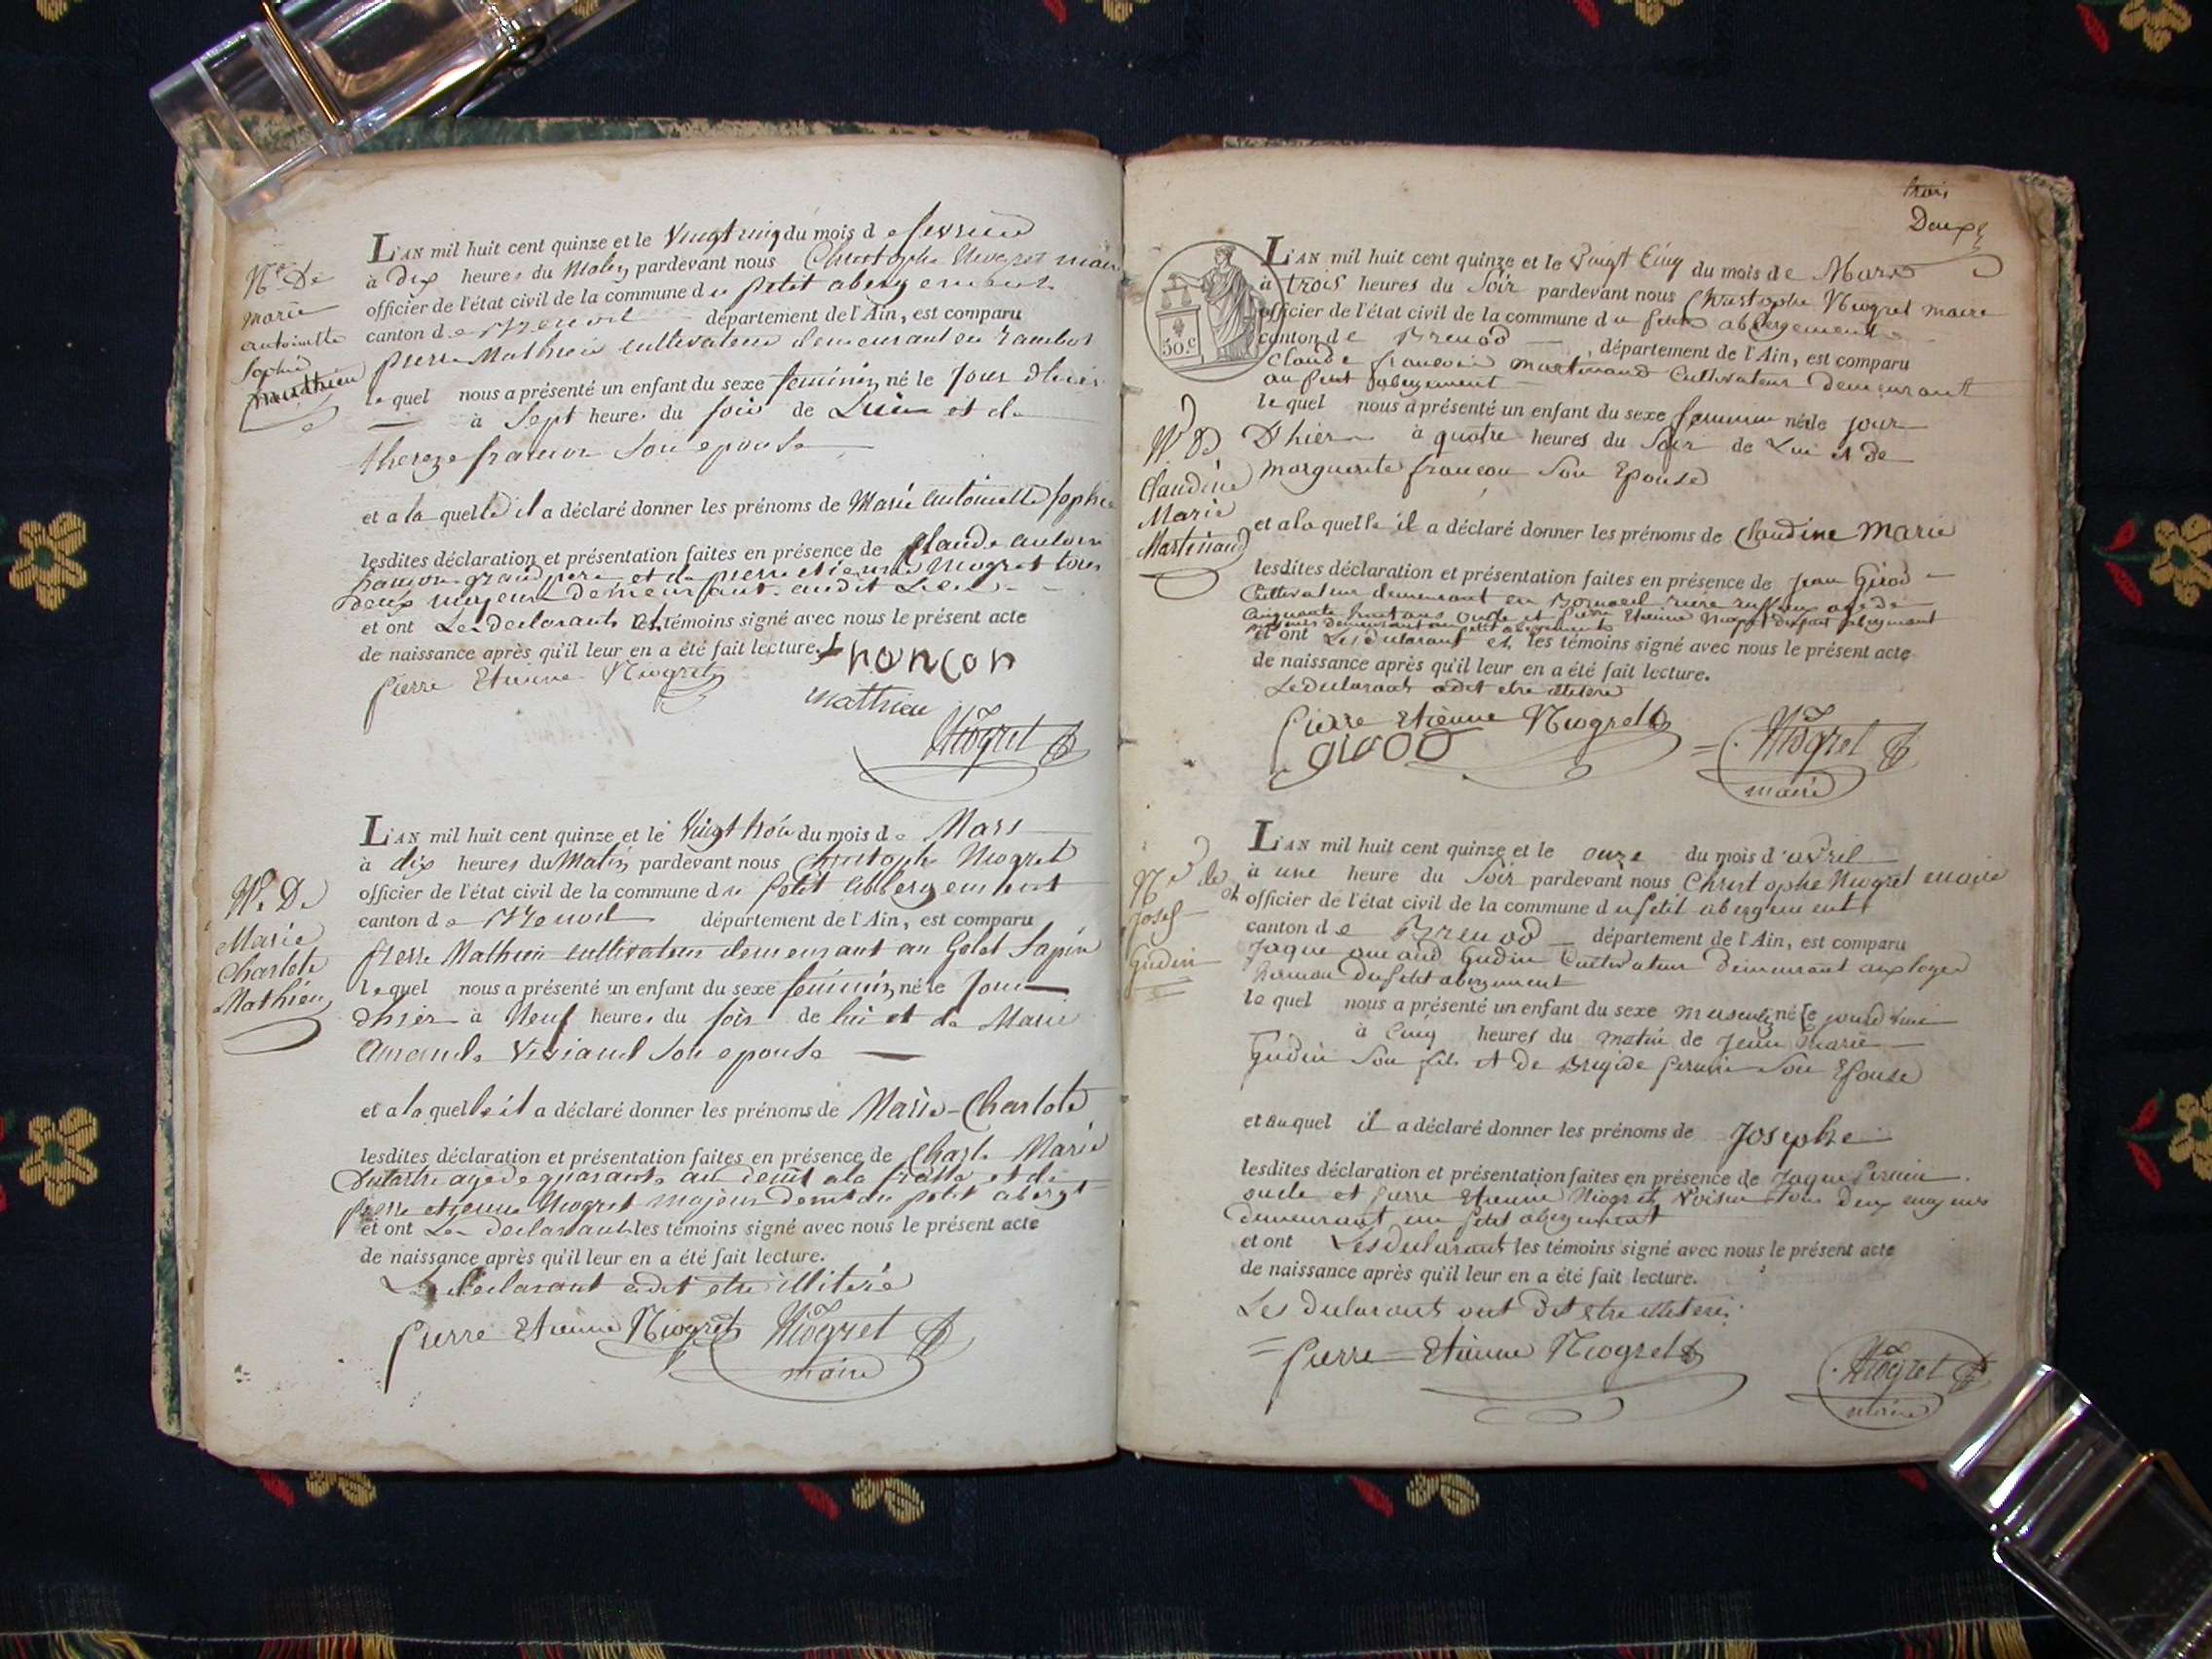 Nce De
marie
antoinette
Sophie
mathieu
L'AN mil huit cent quinze et le Vingt cinq du mois de fevrier
à dix heures du Matin pardevant nous Christophe Niogret maire
officier de l'état civil de la commune du petit abergement
canton de Brenod département de l'Ain, est comparu
pierre Mathieu cultivateur demeurant en
le quel nous a présenté un enfant du sexe feminin né le Jour d'hier
à Sept heures du soir de Lui et de
thereze françon Son epouse
et a la quelle il a déclaré donner les prénoms de Marie antoinette Sophie
lesdites déclaration et présentation faites en présence de Claude antoine
françon grand pere et de pierre etienne Niogret tous
deux majeurs demeurant audit Lieu
et ont Les declarants et témoins signé avec nous le présent acte
de naissance après qu'il leur en a été fait lecture. francon
Pierre Etienne Niogret
mathieu
Niogret
Nce De
Marie
Charlote
Mathieu
L'AN mil huit cent quinze et le Vingt trois du mois de Mars
à dix heures du Matin pardevant nous Christophe Niogret
officier de l'état civil de la commune du petit abbergement
canton de Brenod département de l'Ain, est comparu
pierre Mathieu cultivateur demeurant au Golet Sapin
le quel nous a présenté un enfant du sexe feminin né le Jour
d'hier à Neuf heures du soir de lui et de Marie
Amande Viviand Son epouse
et a la quelle il a déclaré donner les prénoms de Marie-Charlote
lesdites déclaration et présentation faites en présence de Charle Marie
Dutartre agé de quarante an demt a la et de
pierre etienne Niogret majeur demt au petit abergt
et ont Les declarants les témoins signé avec nous le présent acte
de naissance après qu'il leur en a été fait lecture.
Le declarant a dit etre illiteré
Pierre Etienne Niogret Niogret
maire
trois
Deux
50.c
L'AN mil huit cent quinze et le Vingt Cinq du mois de Mars
à trois heures du Soir pardevant nous Christophe Niogret maire
officier de l'état civil de la commune du petit abergement
canton de Brenod département de l'Ain, est comparu
Claude françois Martinand Cultivateur Demeurant
au petit abergement
le quel nous a présenté un enfant du sexe feminin né le jour
D'hier à quatre heures du Soir de Lui et de
Marguerite françon Son Epouse
Nce D
Claudine
Marie
Martinand
et a la quelle il a déclaré donner les prénoms de Claudine Marie
lesdites déclaration et présentation faites en présence de Jean Girod
Cultivateur demeurant en agé de
Cinquante huit ans oncle et Pierre Etienne Niogret du petit abergement
majeurs demeurant au petit abergement
et ont Les declarant et les témoins signé avec nous le présent acte
de naissance après qu'il leur en a été fait lecture.
Le declarant a dit etre illiteré
Pierre Etienne Niogret
girod
Niogret
maire
Nce de
Josef
Gudin
L'AN mil huit cent quinze et le onze du mois d'avril
à une heure du Soir pardevant nous Christophe Niogret maire
officier de l'état civil de la commune du petit abergement
canton de Brenod département de l'Ain, est comparu
Jaque Gudin Cultivateur Demeurant aux loges
hameau du petit abergement
le quel nous a présenté un enfant du sexe masculin né le jourd'huit
à Cinq heures du matin de Jean Marie
Gudin Son fils et de Brigide Son Epouse
et au quel il a déclaré donner les prénoms de Josephe
lesdites déclaration et présentation faites en présence de Jaque
oncle et Pierre Etienne Niogret voisin tous deux majeurs
demeurant au petit abergement
et ont Les declarants les témoins signé avec nous le présent acte
de naissance après qu'il leur en a été fait lecture.
Les declarants ont Dit etre illiteré
Pierre Etienne Niogret
Niogret
maire